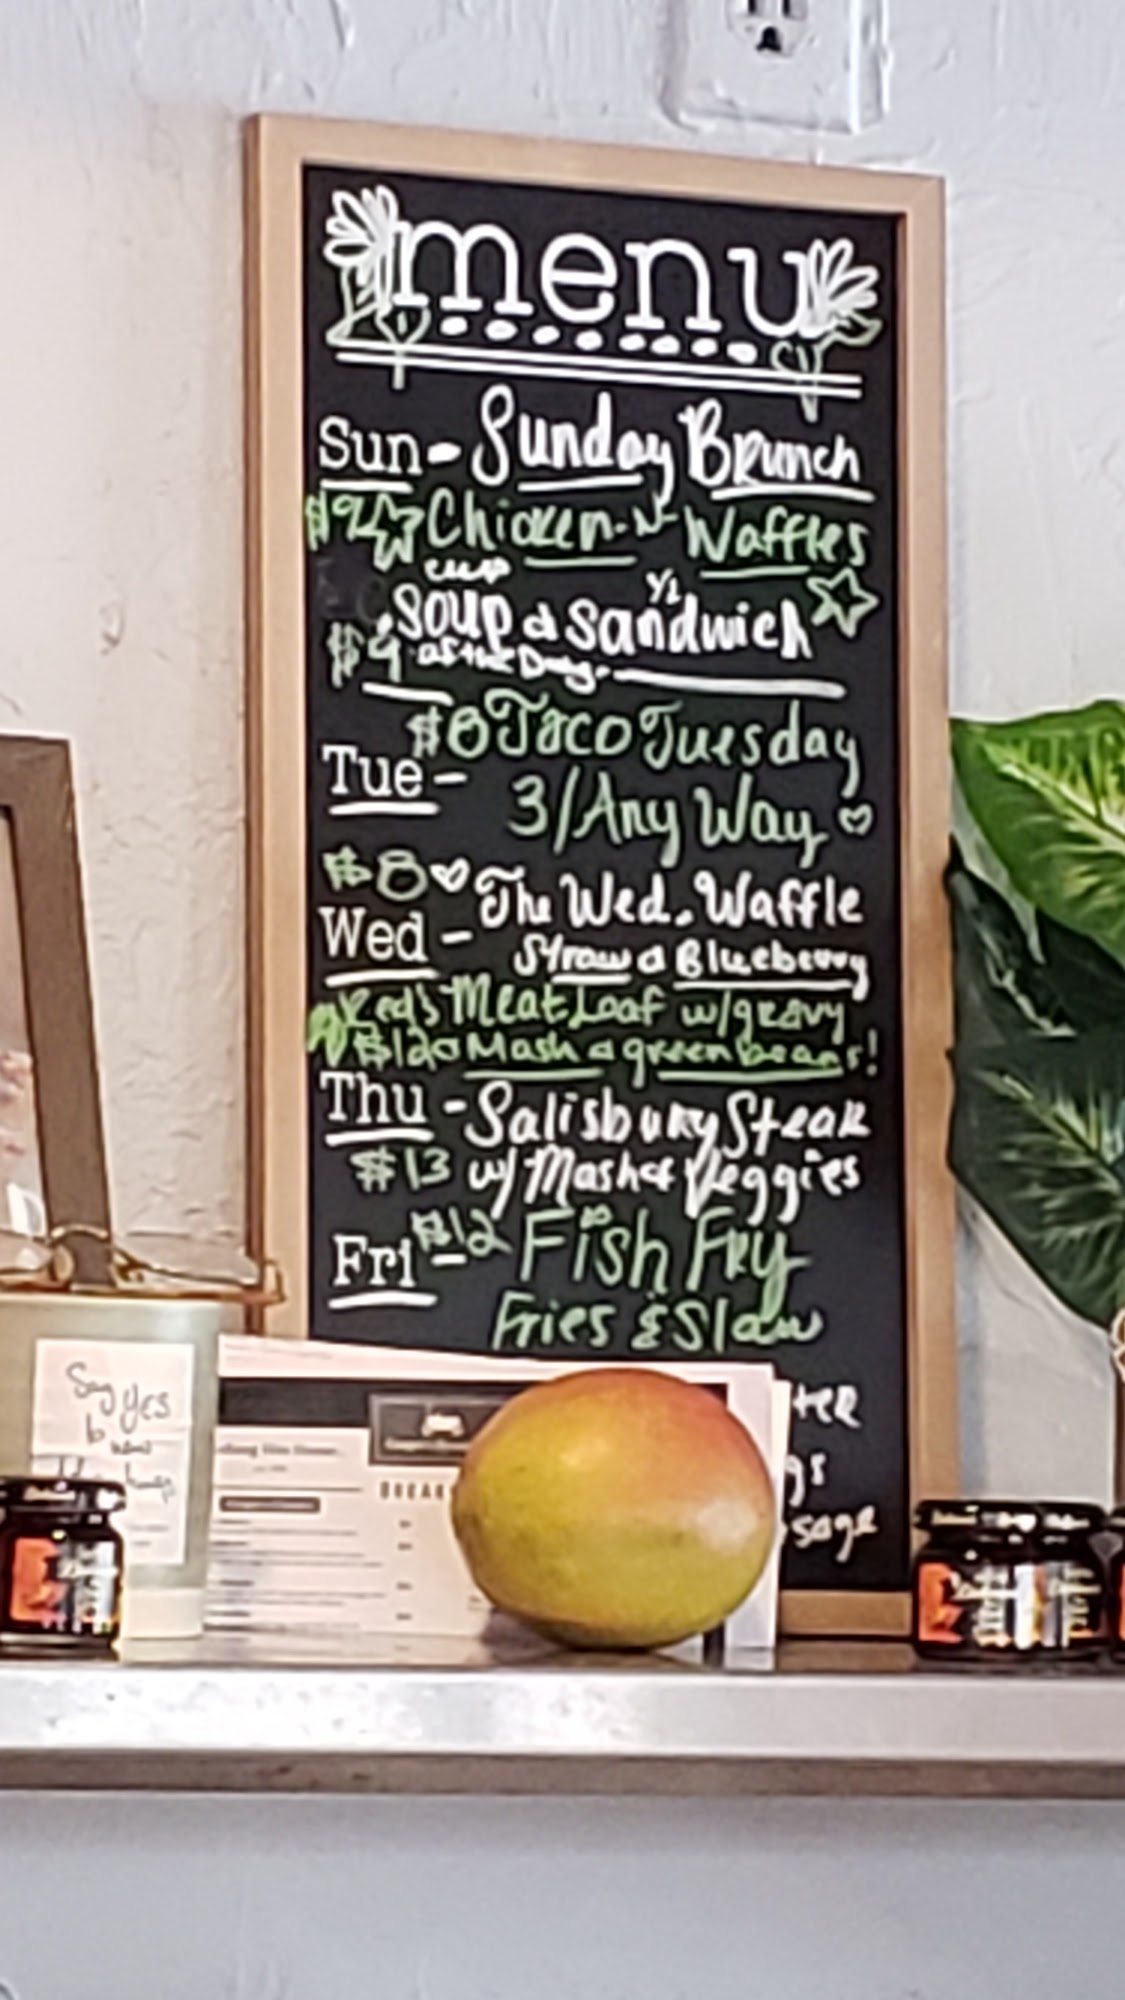 menu
Sun - Sunday Brunch
$12 Chicken-N-Waffles
cup 1/2
Soup & Sandwich
$9 of the Day
$8 Taco Tuesday
Tue -
3/Any Way
$8 The Wed. Waffle
Wed -
Straw & Blueberry
Red's Meat Loaf w/gravy
$12 Mash & green beans!
Thu - Salisbury Steak
$13 w/ Mash & Veggies
Fri - $12 Fish Fry
Fries & Slaw
Say Yes
BREAK
sage